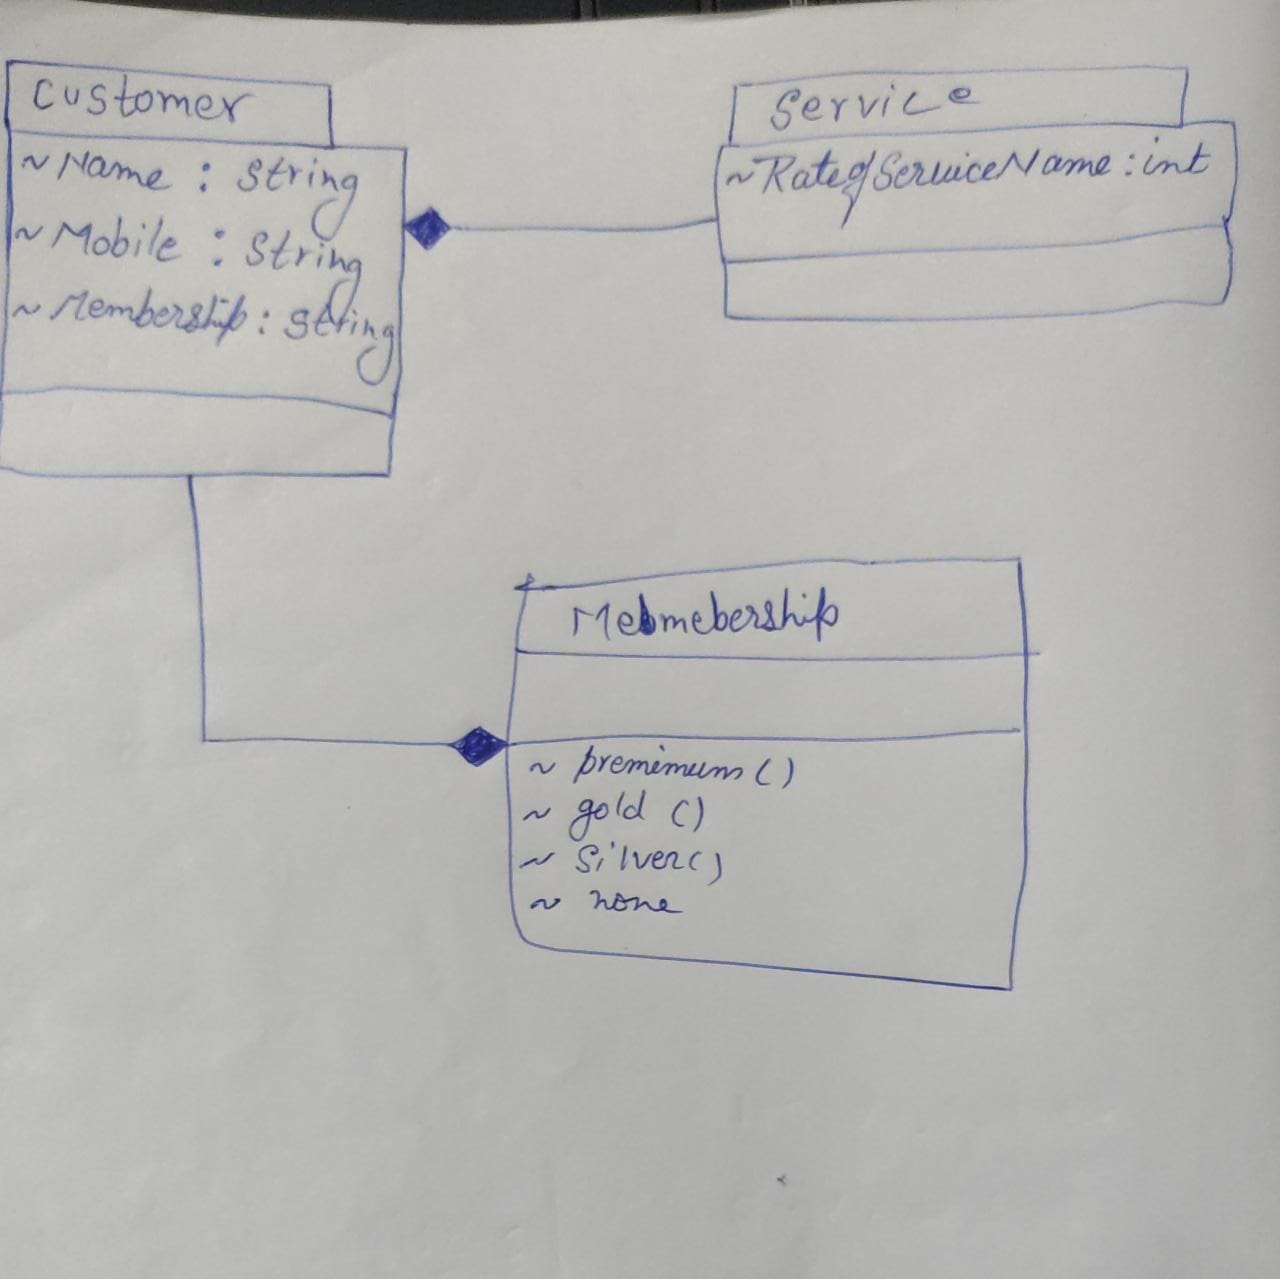 Customer
~ Name : String
~ Mobile : String
~ Membership : String
Service
~ RateofServiceName : int
Mebmebership
~ premimum ()
~ gold ()
~ Silver()
~ none